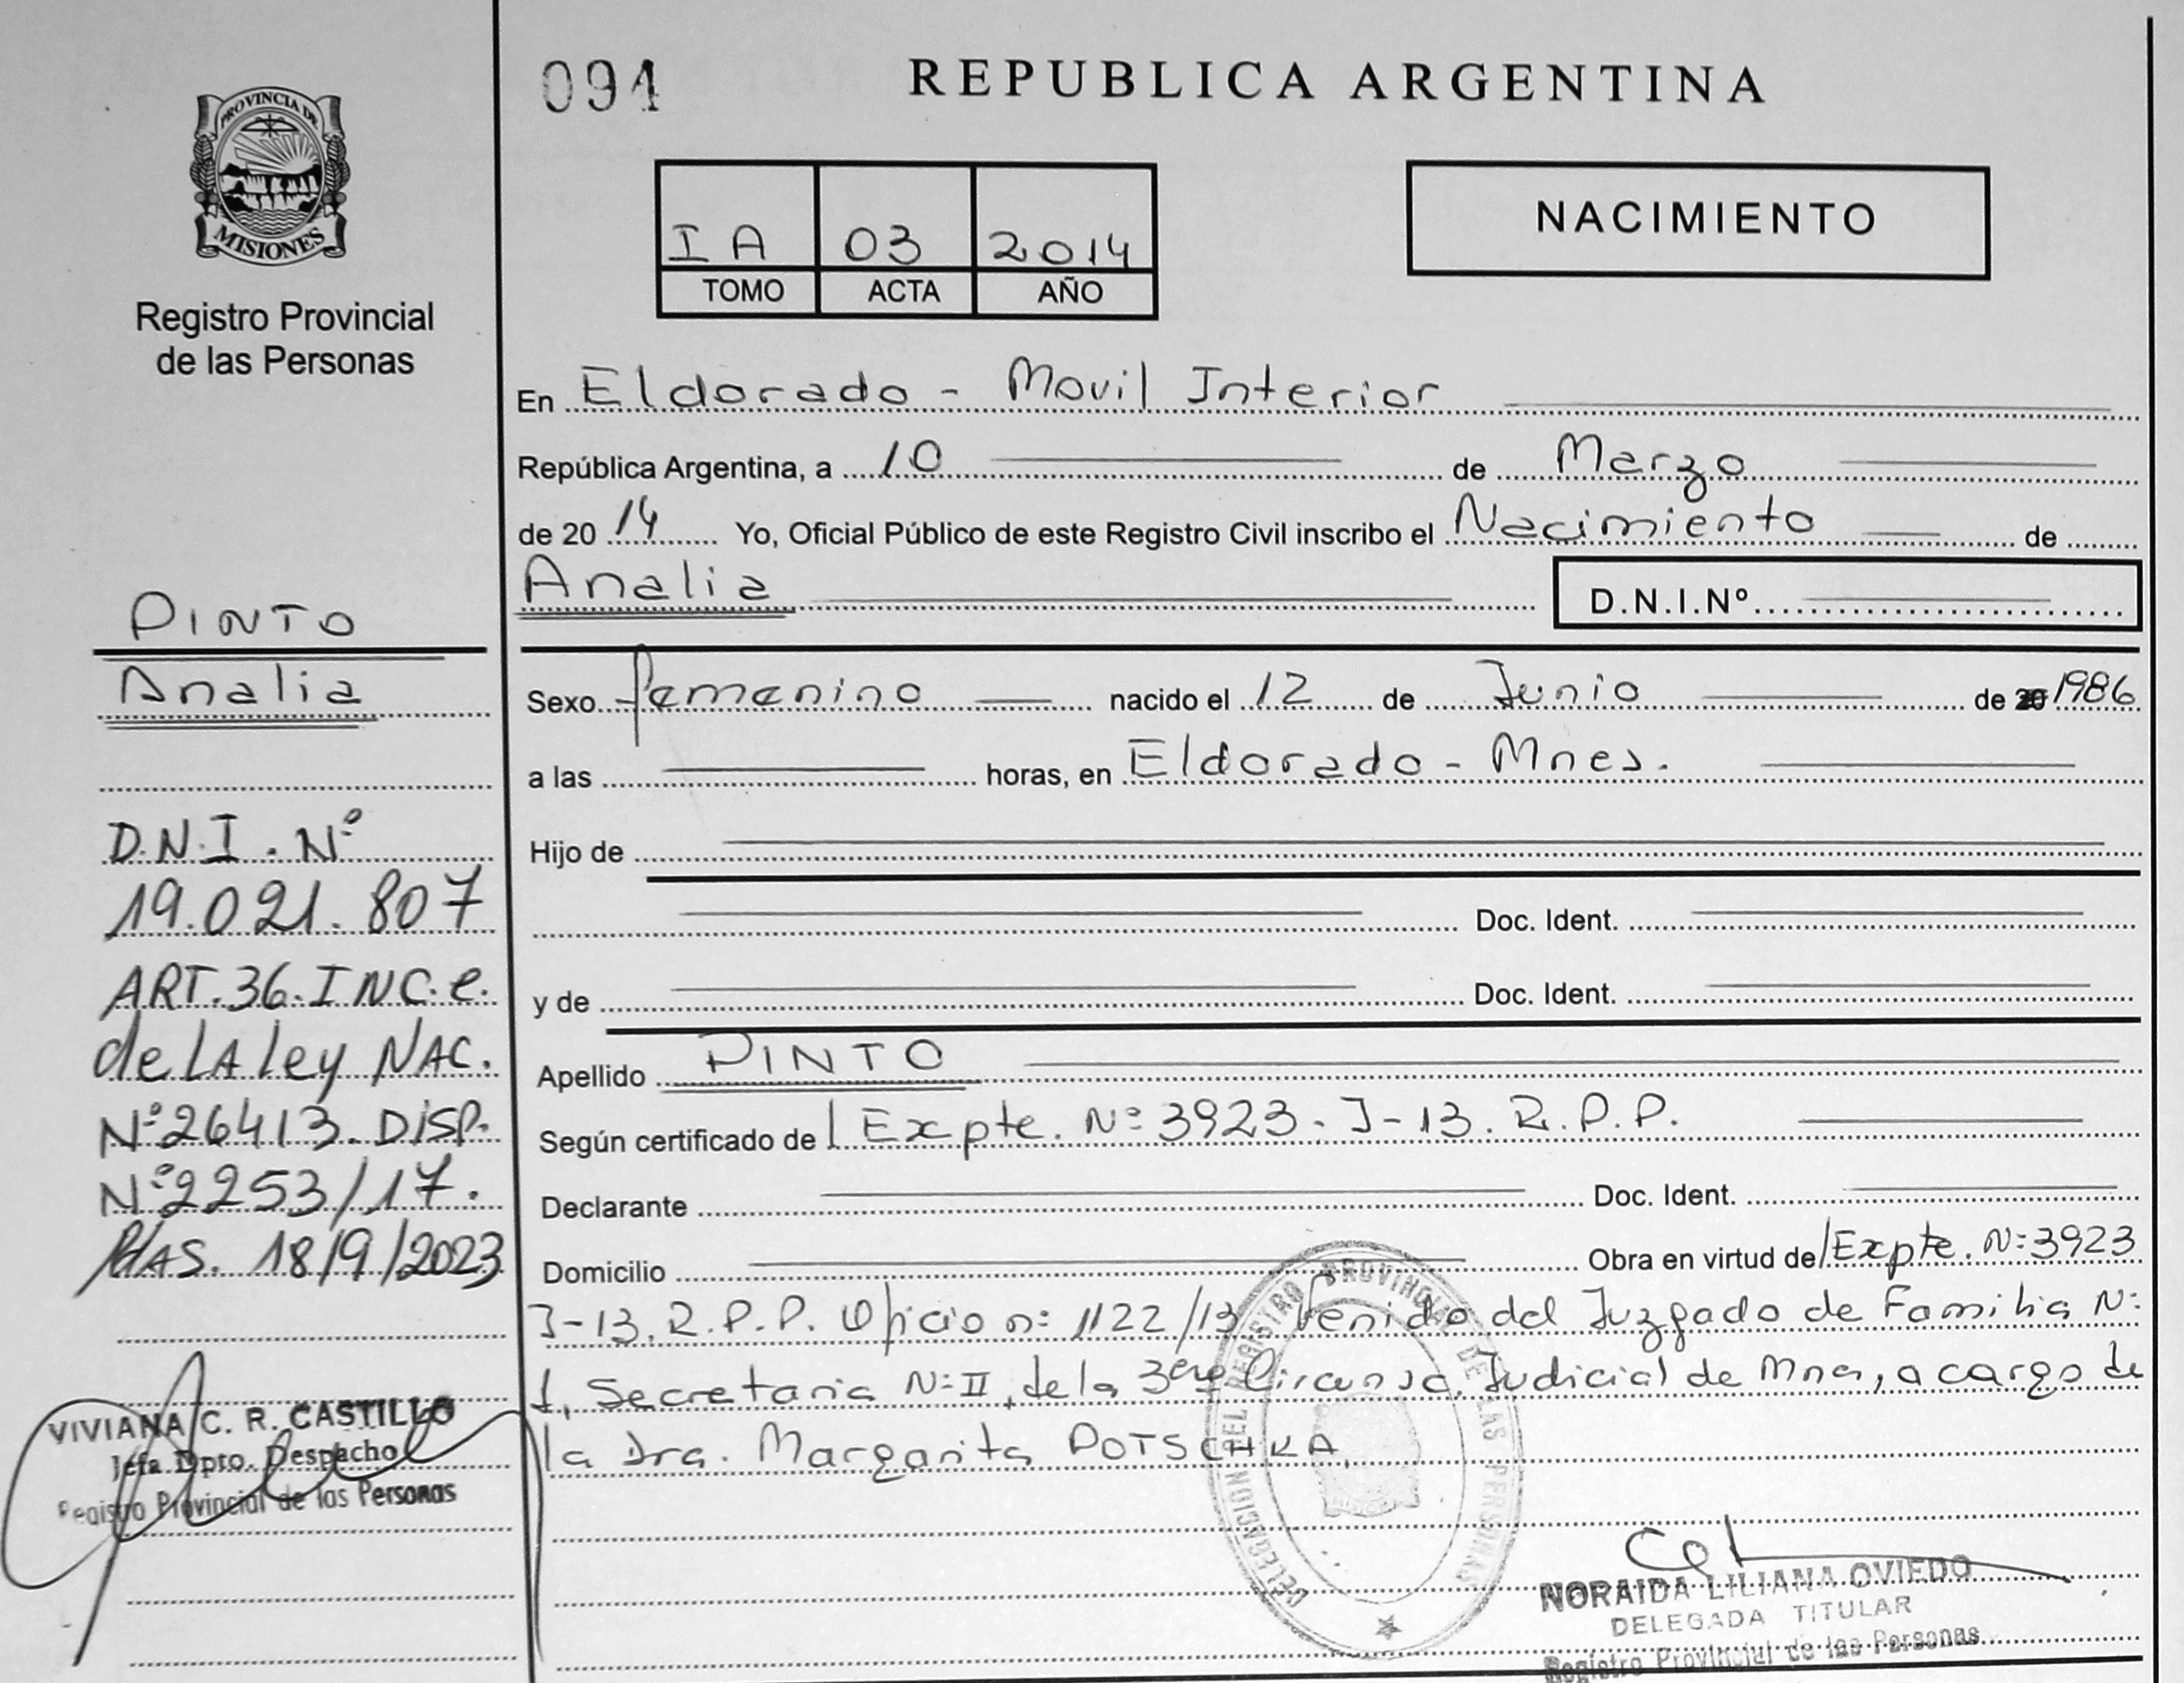 PROVINCIA DE
MISIONES
Registro Provincial
de las Personas
PINTO
Analia
D.N.I. Nº
19.021.807
ART.36.INC.e.
de LA Ley NAC.
Nº26413. DISP.
Nº2253/17.
18/9/2023
VIVIANA C. R. CASTILLO
Jefa Dpto. Despacho
Registro Provincial de las Personas
094
REPUBLICA ARGENTINA
IA 03 2014
TOMO ACTA AÑO
NACIMIENTO
En Eldorado - Movil Interior
República Argentina, a 10 de Marzo
de 20 14 Yo, Oficial Público de este Registro Civil inscribo el Nacimiento de
Analia D.N.I.Nº
Sexo femenino nacido el 12 de Junio de 20 1986
a las horas, en Eldorado - Mnes.
Hijo de
Doc. Ident.
y de Doc. Ident.
Apellido PINTO
Según certificado de Expte. Nº 3923. J-13. R.P.P.
Declarante Doc. Ident.
Domicilio Obra en virtud de Expte. Nº 3923
J-13. R.P.P. Oficio nº 1122/13 Venido del Juzgado de Familia Nº
1, Secretaria Nº II, de la 3era Circunsc. Judicial de Mnes, a cargo de
la Dra. Margarita POTSCHKA
DELEGACION DEL REGISTRO PROVINCIAL DE LAS PERSONAS
NORAIDA LILIANA OVIEDO
DELEGADA TITULAR
Registro Provincial de las Personas